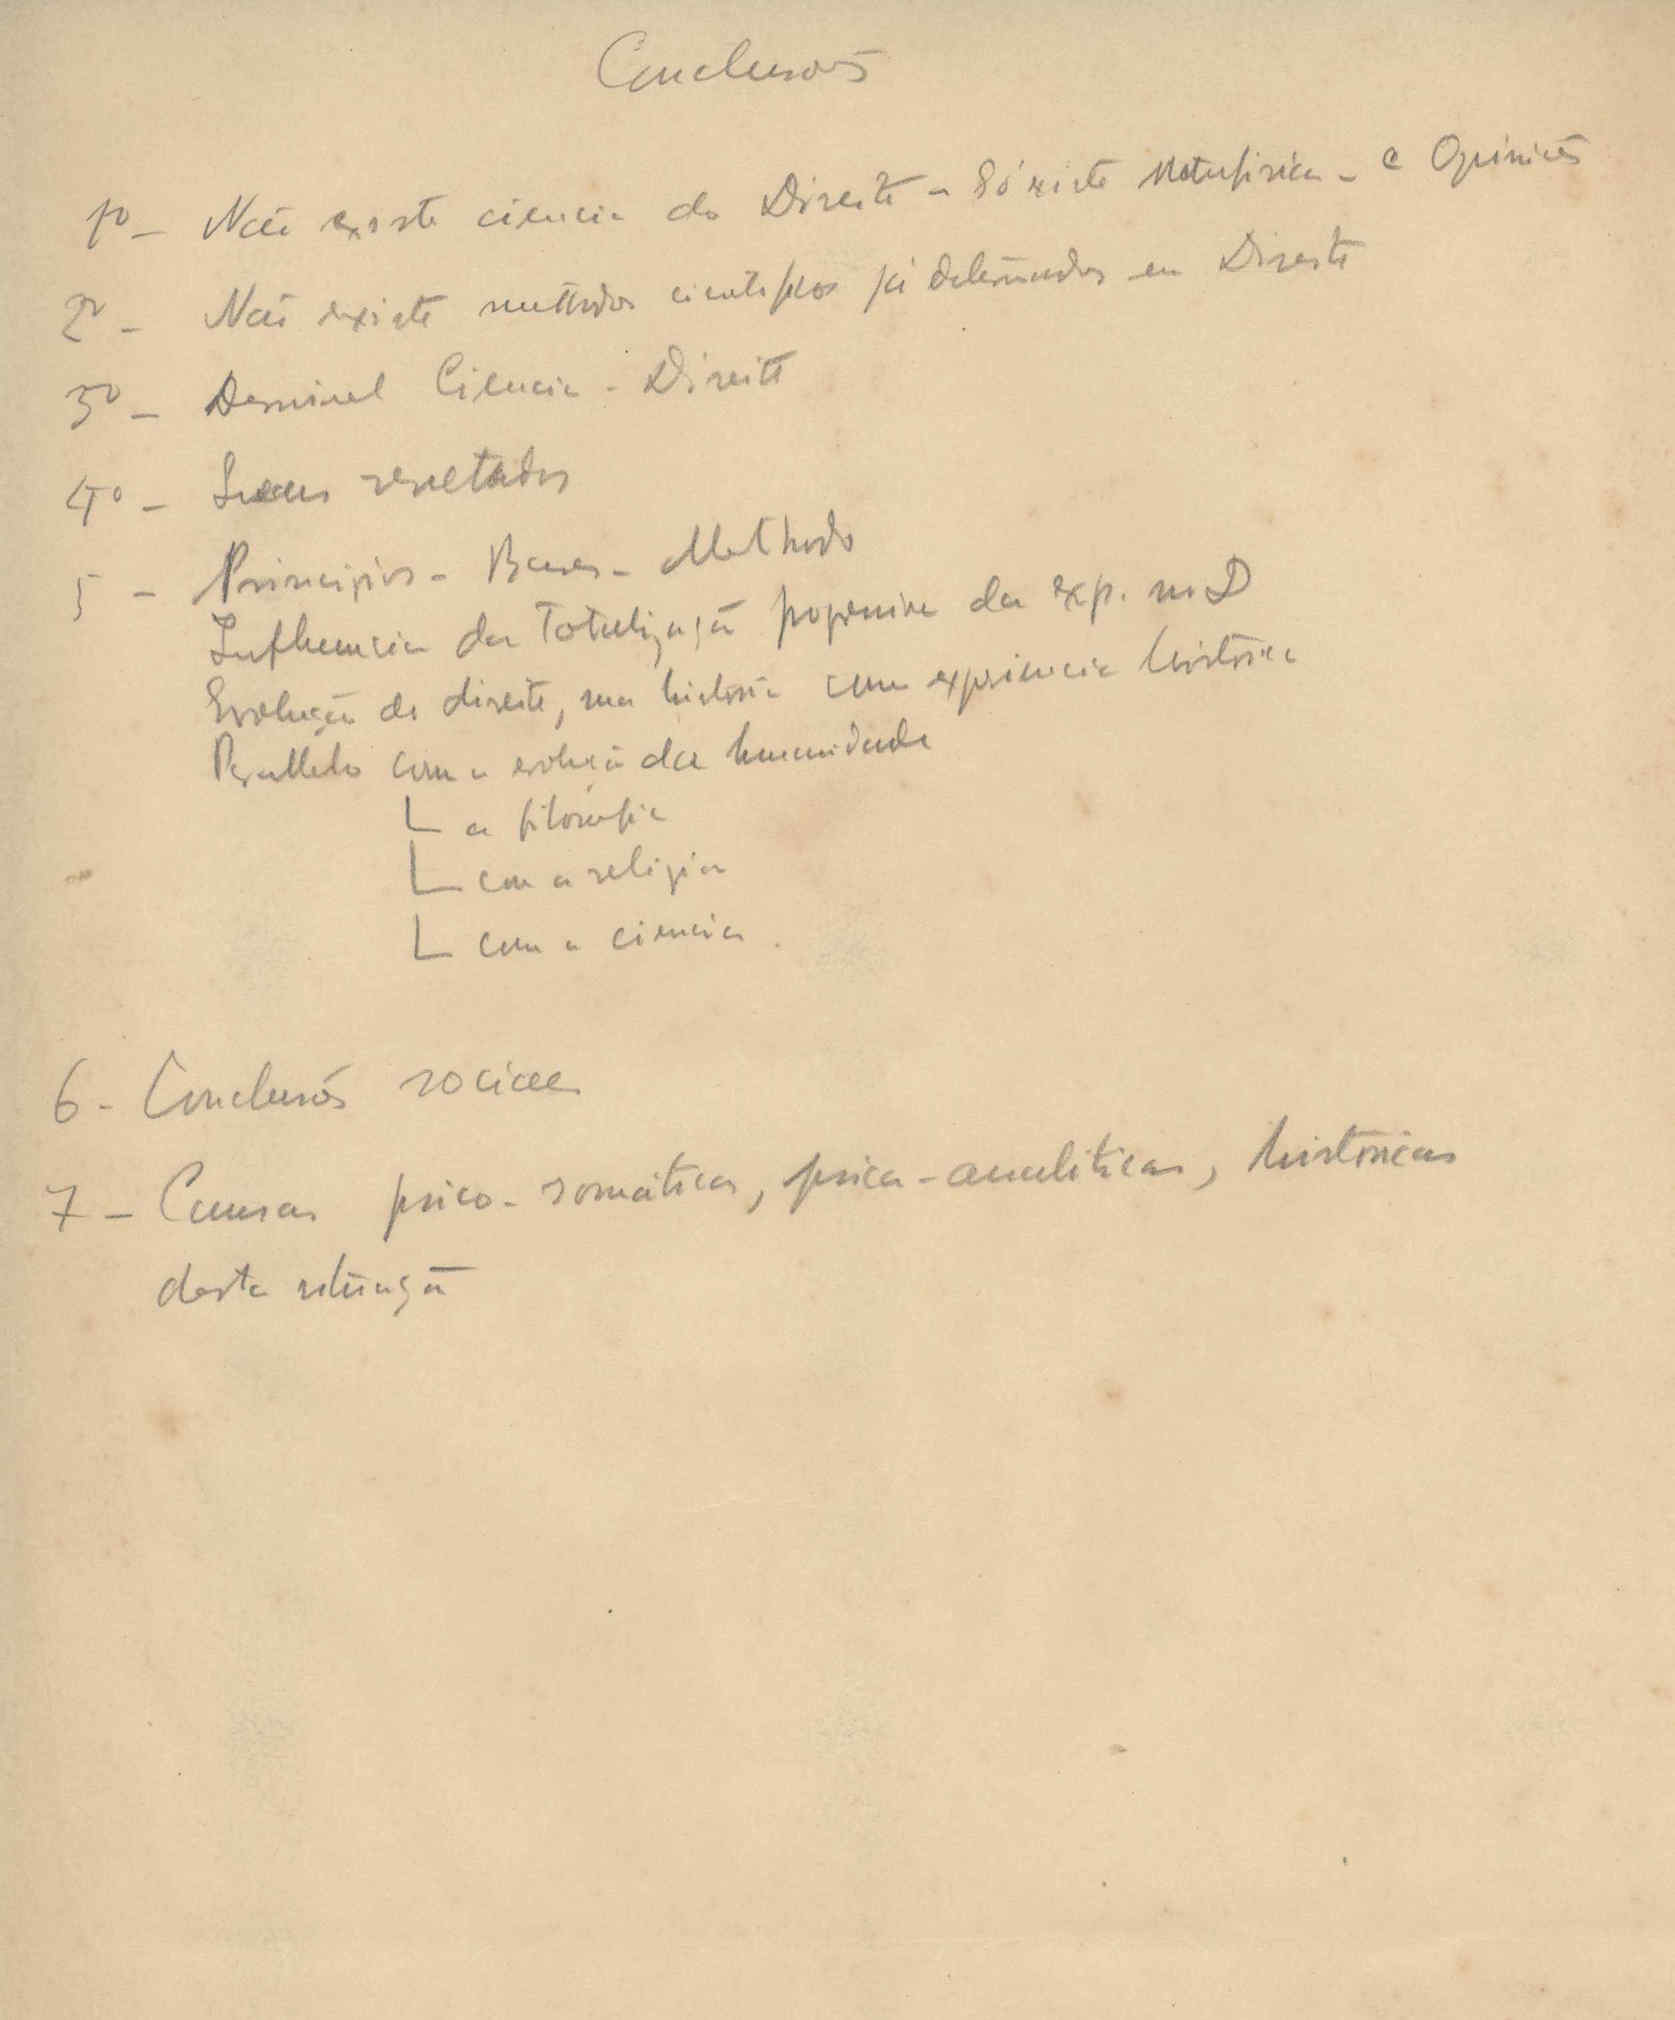 Conclusões
1º - Não existe ciencia do Direito - Só existe Metafisica - e Opiniões
2º - Não existe methodos cientificos já determinados em Direito
3º - Ciencia - Direito
4º - resultados
5 - Principios - Bases - Methodo
Influencia da Totalização progressiva da exp. no D
Evolução do direito, sua historia como experiencia historica
Parallelo com a evolução da humanidade
a filosofia
com a religião
com a ciencia.
6 - Conclusões sociaes
7 - Causas psico-somáticas, psico-analiticas, históricas
desta situação